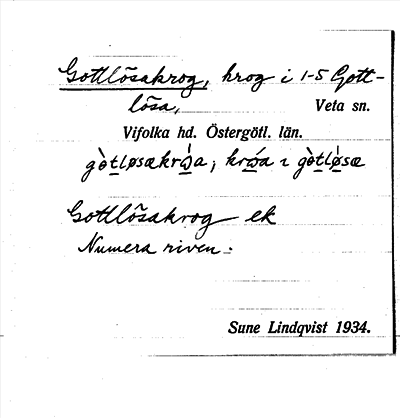 Gottlösakrog, krog i 1-5 Gott-
lösa, Veta sn.
Vifolka hd. Östergötl. län.
Gottlösakrog ek
Numera riven.
Sune Lindqvist 1934.